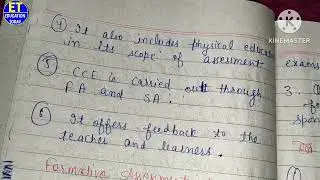 ET
EDUCATION
TODAY
KINEMASTER
④ It also includes physical educa
in its scope of assessment
⑤ CCE is carried out through
FA and SA.
⑥ It offers feedback to the
teacher and learners.
Formative
exams
3.